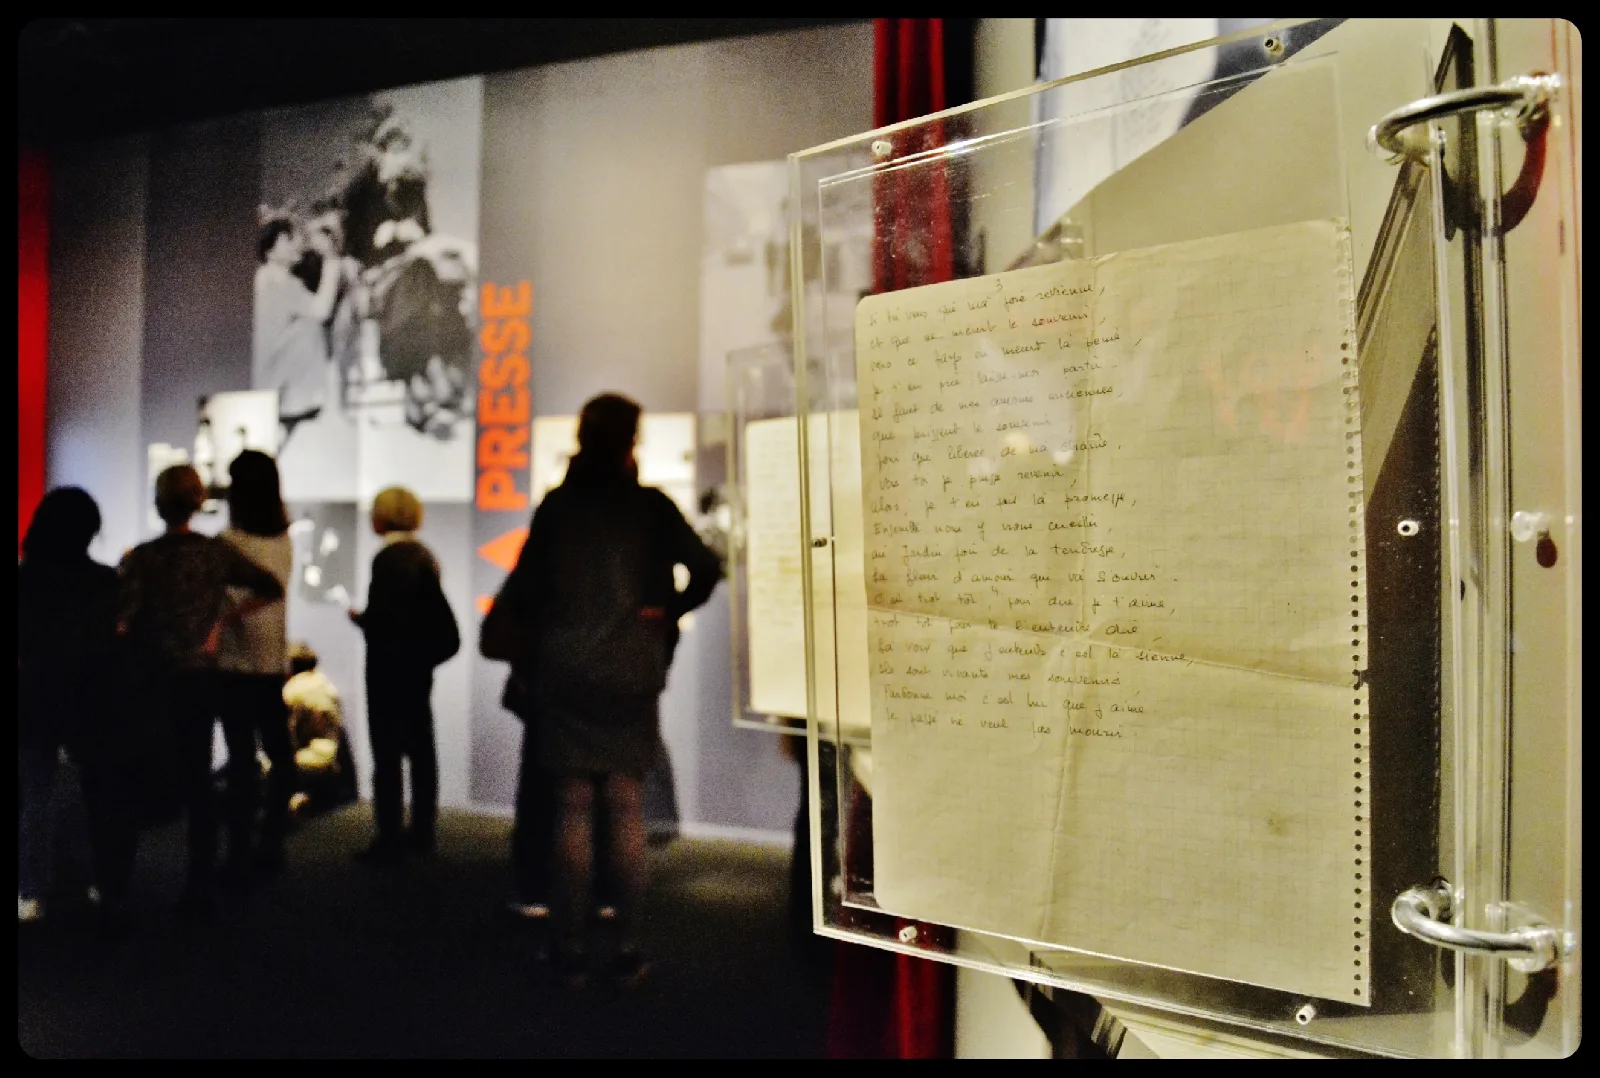 LA PRESSE
3
Si tu veux que ma joie revienne,
et que ne meurt le souvenir,
vers ce pays ou meurt la peine,
je t'en prie laisse-moi partir.
Il faut de mes amours anciennes,
que périssent le souvenir,
pour que libérée de ma chaîne,
vers toi je puisse revenir,
Alors, je t'en fais la promesse,
Ensemble nous y irons cueillir,
au jardin fou de la tendresse,
La fleur d'amour qui va s'ouvrir.
C'est trop tôt, pour dire je t'aime,
trop tôt pour te l'entendre dire
La voix que j'entends c'est la sienne,
Ils sont vivants mes souvenirs
Pardonne moi c'est lui que j'aime
le passé ne veut pas mourir.